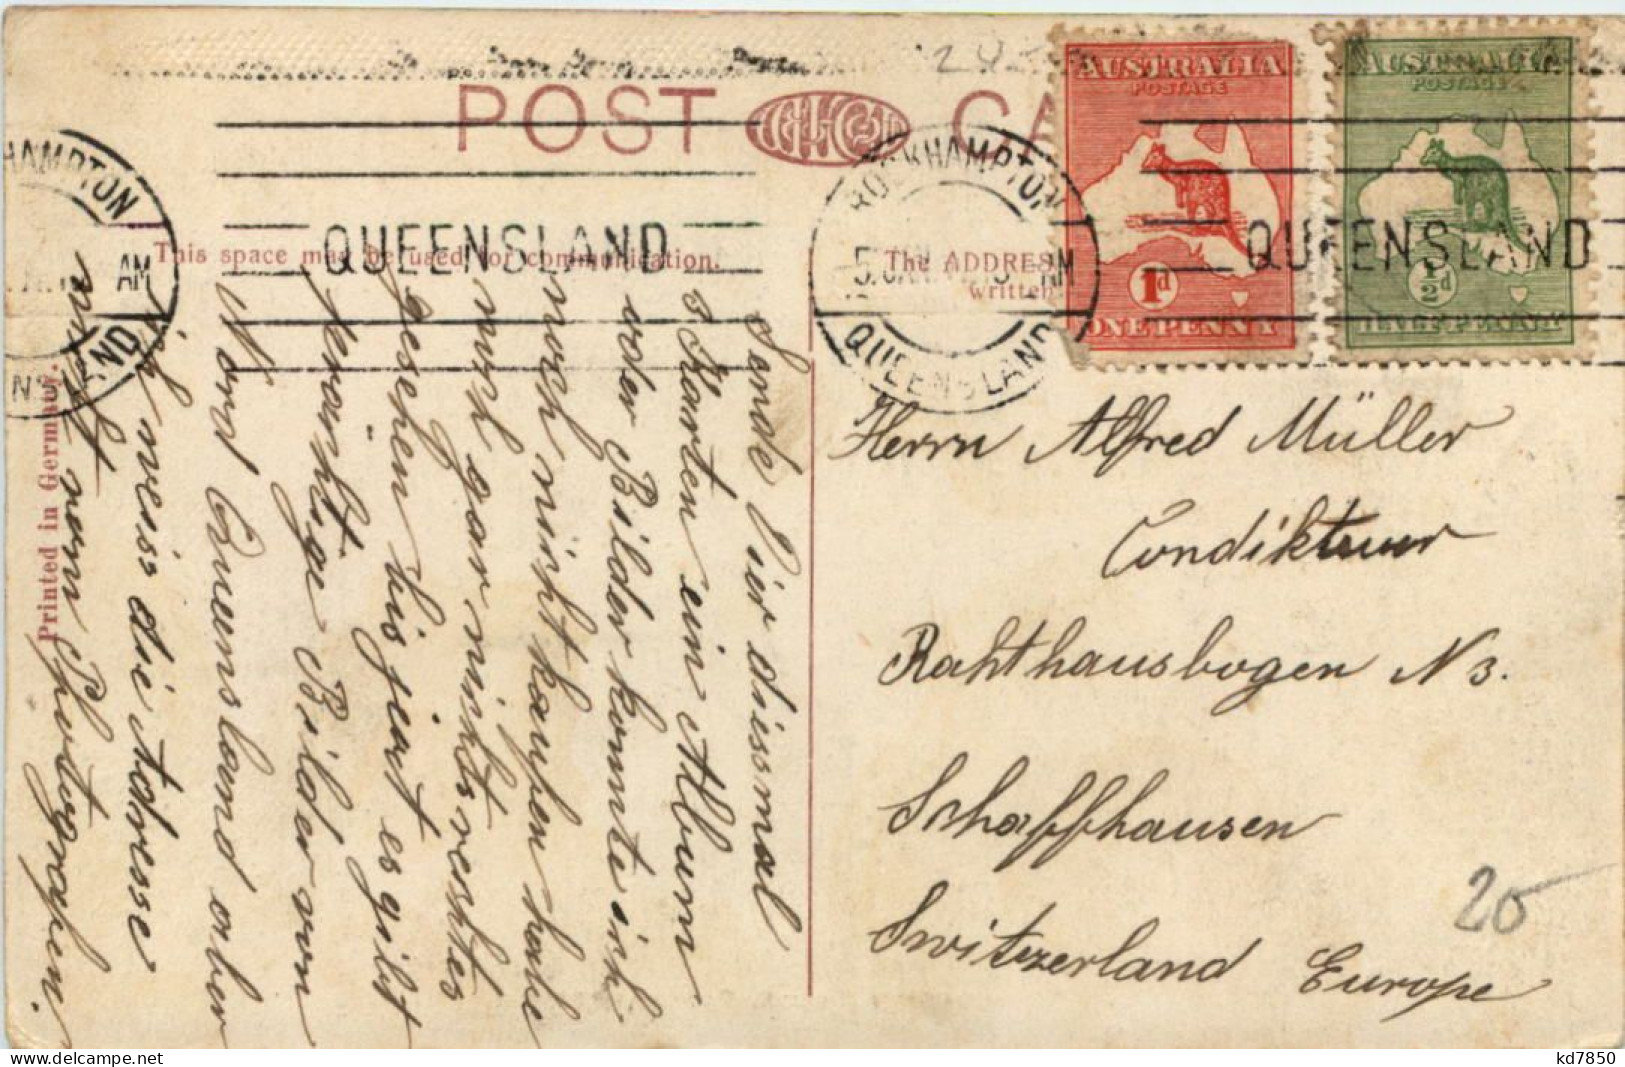 POST CA
AUSTRALIA
POSTAGE
1d
ONE PENNY
AUSTRALIA
POSTAGE
½d
HALF PENNY
HAMPTON
AM
QUEENSLAND
ROCKHAMPTON
5
AM
QUEENSLAND
QUEENSLAND
This space may be used for communication.
The ADDRESS
written
Printed in Germany.
Sende Dier diissmal
3 Karten ein Album
oder Bilder konnte ich
noch nicht kaufen habe
noch gar nichts rechtes
gesehen bis jeart es gibt
Bilder von
Nord Queensland aber
ich weiss die Adresse
nicht vom Photografen.
Herrn Alfred Müller
Condikteur
Rahthausbogen N 3.
Schaffhausen
Switzerland Europe
20
kd7850